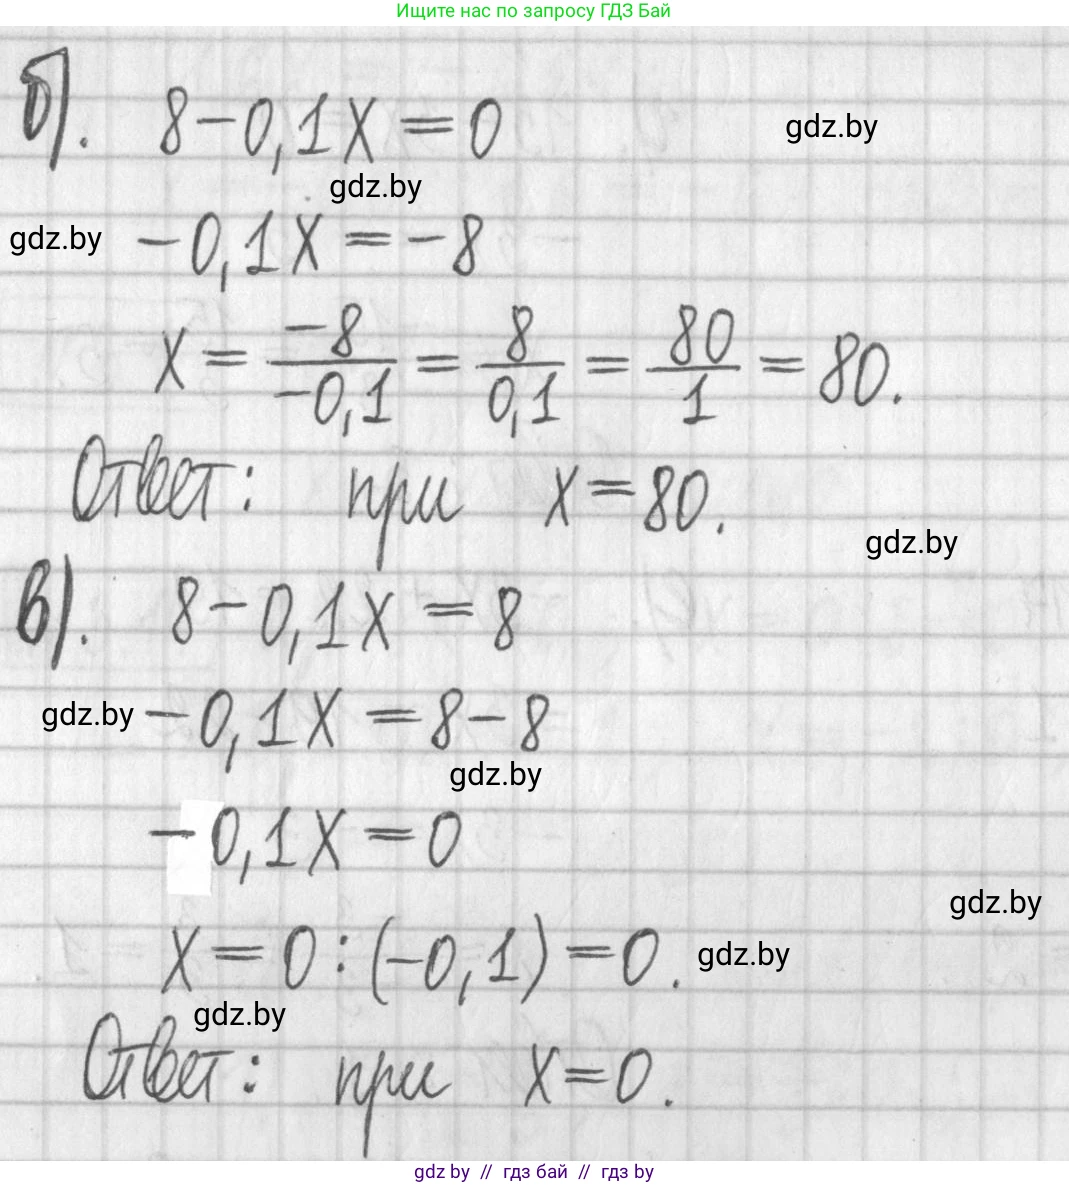 Ищите нас по запросу ГДЗ Бай
б). 8-0,1x=0
gdz.by
gdz.by
gdz.by -0,1x=-8
x = -8/-0,1 = 8/0,1 = 80/1 = 80.
Ответ: при x=80.
gdz.by
в). 8-0,1x=8
gdz.by -0,1x=8-8
gdz.by
-0,1x=0
gdz.by
x=0:(-0,1)=0. gdz.by
gdz.by
Ответ: при x=0.
gdz by // гдз бай // гдз by